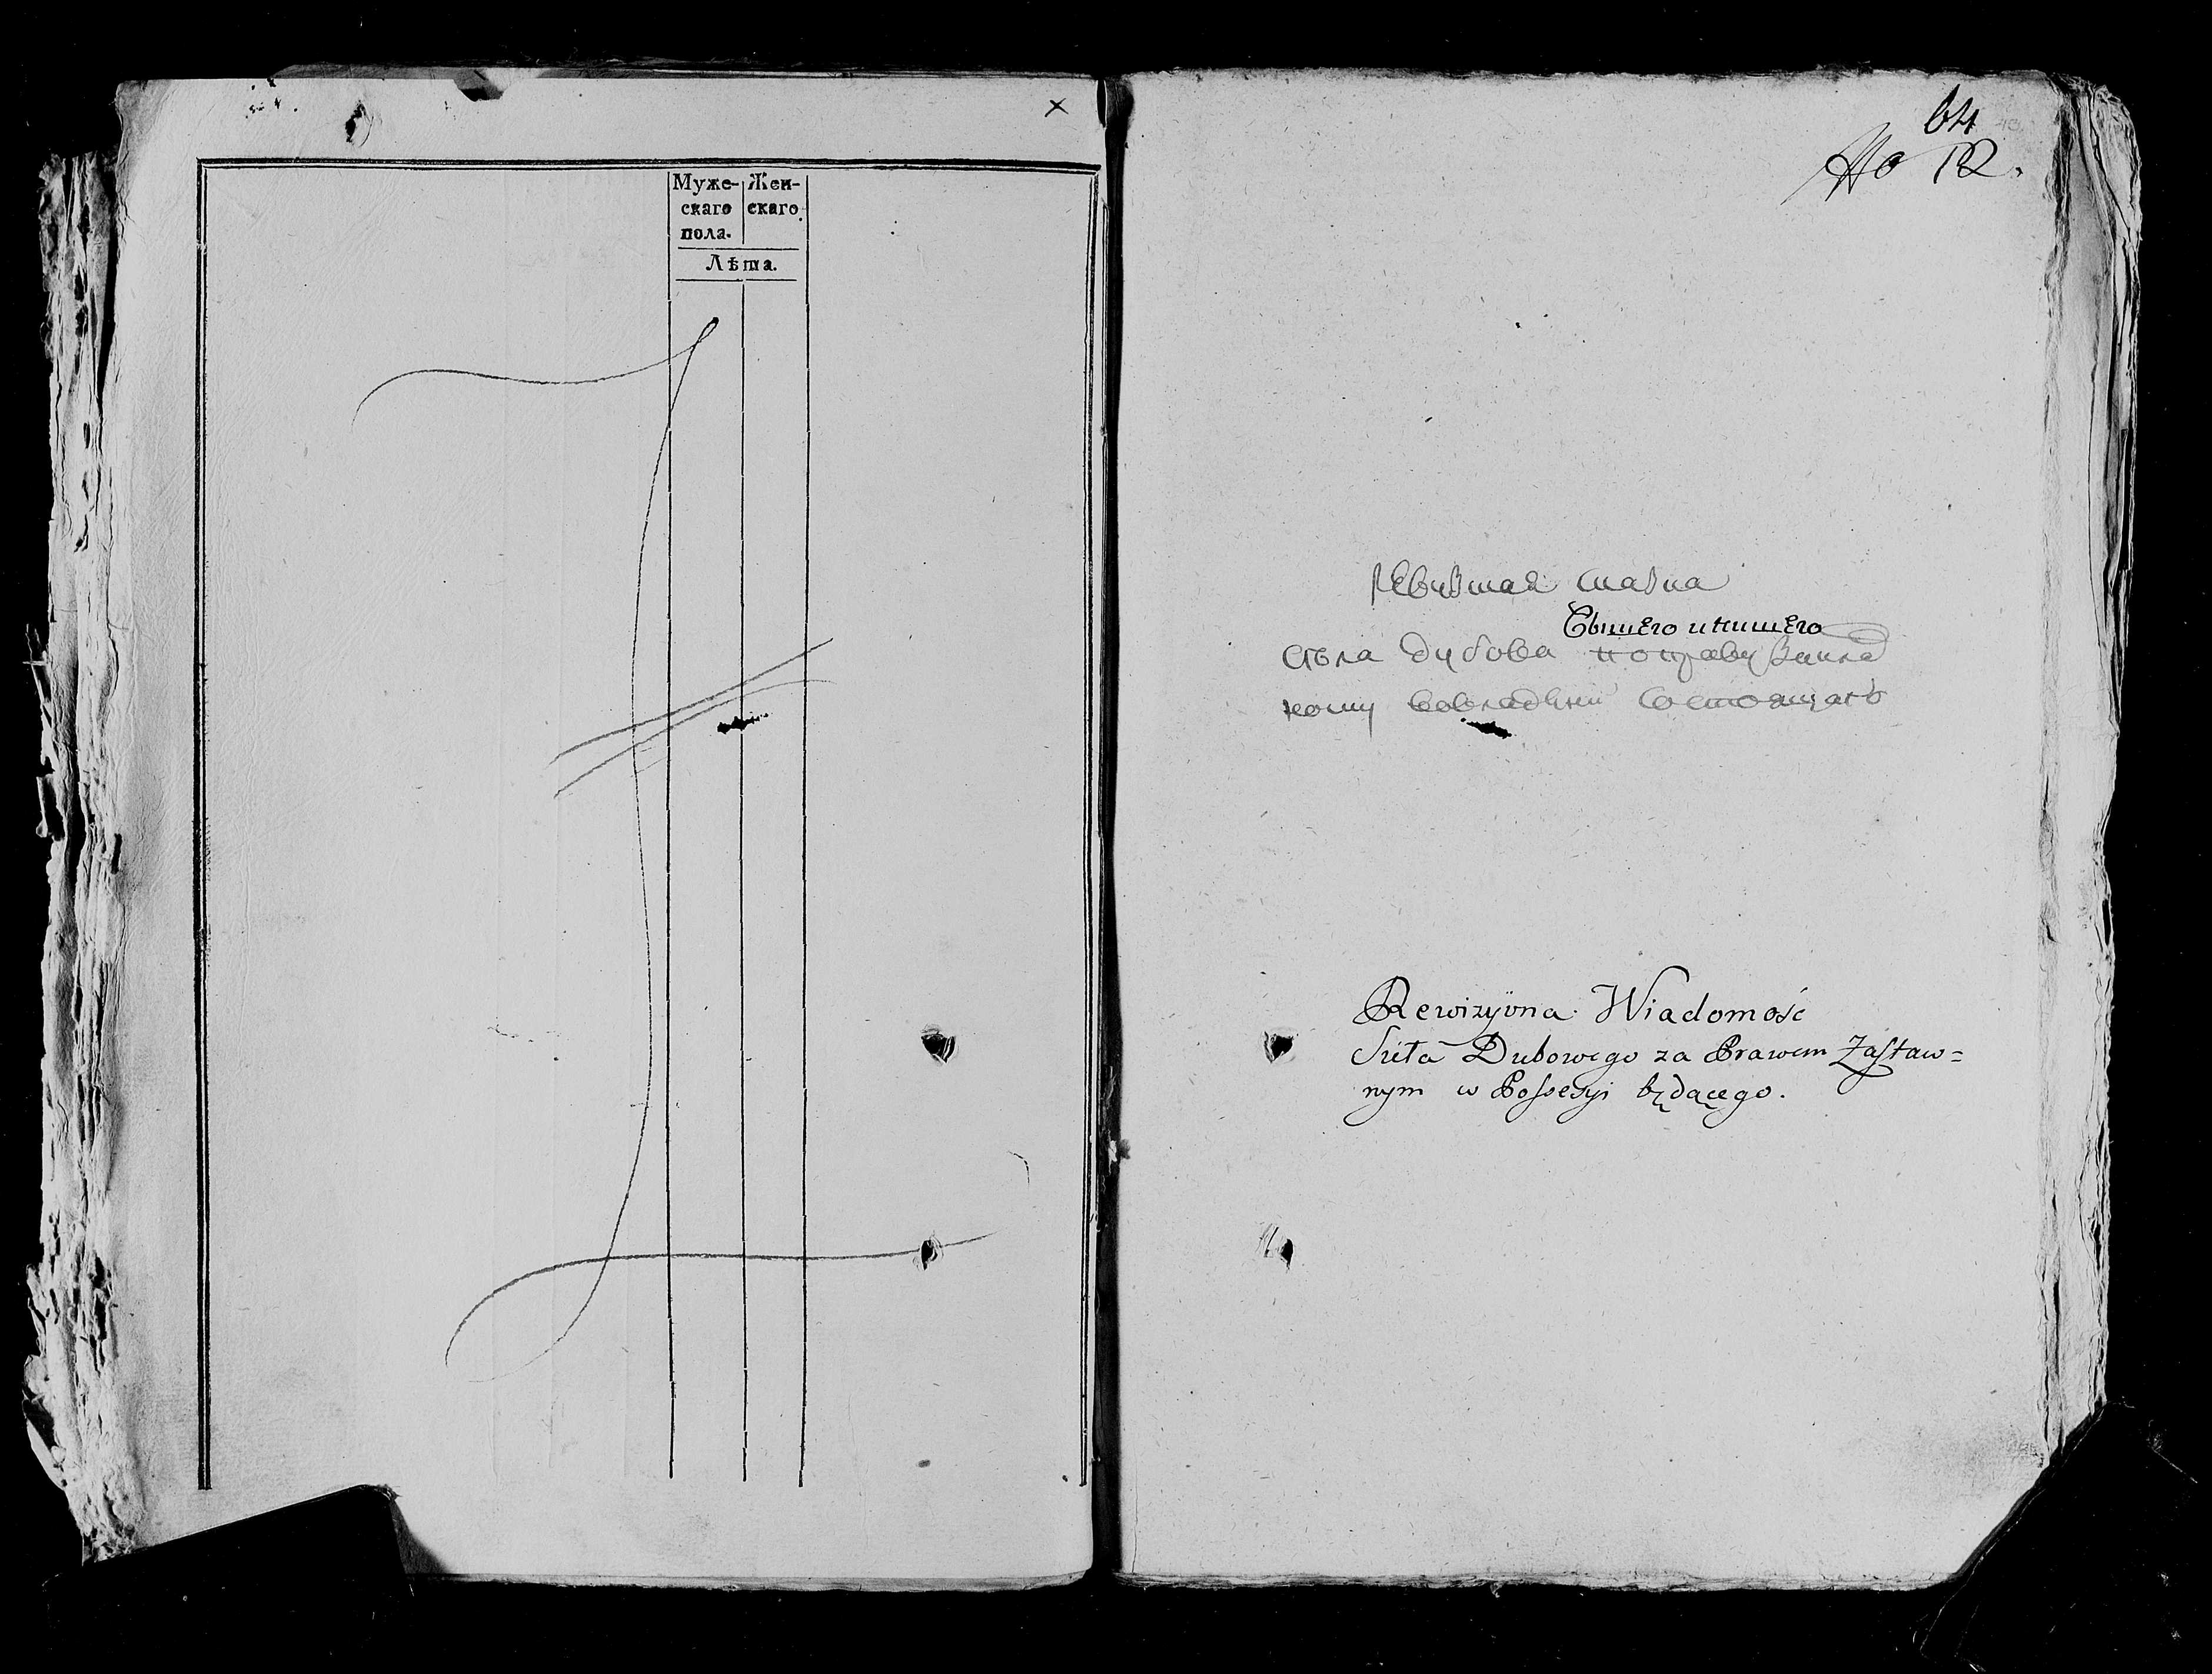 ×
Муже- Жен-
скаго скаго
пола.
Лѣта.
64
No 12.
Ревизкая сказка
Вышего и нишего
Села Дубова по праву заклад
ному вовладѣни состоящаго
Rewizyina Wiadomość
Sieła Dubowego za Prawem Zastaw=
nym w Possesyi będącego.